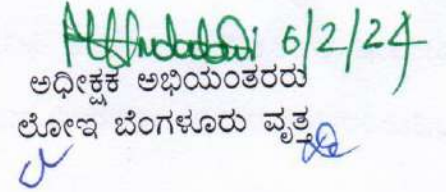 6/2/24
ಅಧೀಕ್ಷಕ ಅಭಿಯಂತರರು
ಲೋಇ ಬೆಂಗಳೂರು ವೃತ್ತ